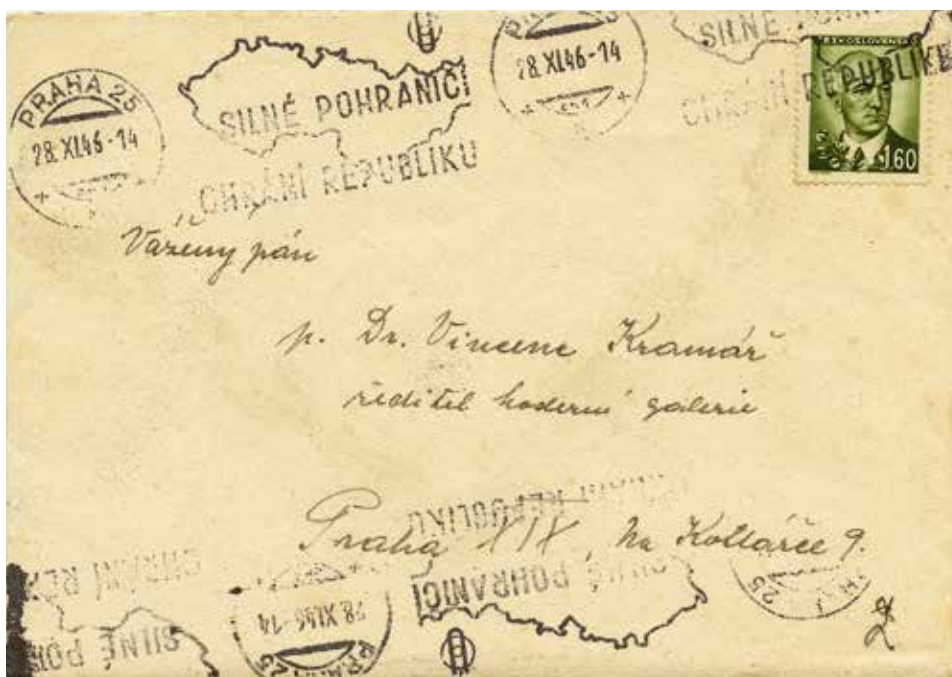 PRAHA 25
28.XI.46-14
SILNÉ POHRANIČÍ
CHRÁNÍ REPUBLIKU
28.XI.46-14
SILNÉ
CHRÁNÍ REPUBLIKU
1.60
Vážený pán
p. Dr. Vincenc Kramář
ředitel moderní galerie
Praha XIX, Na Kotlářce 9.
CHRÁNÍ REPUBLIKU
SILNÉ POHRANIČÍ
28.XI.46-14
PRAHA 25
SILNÉ
25